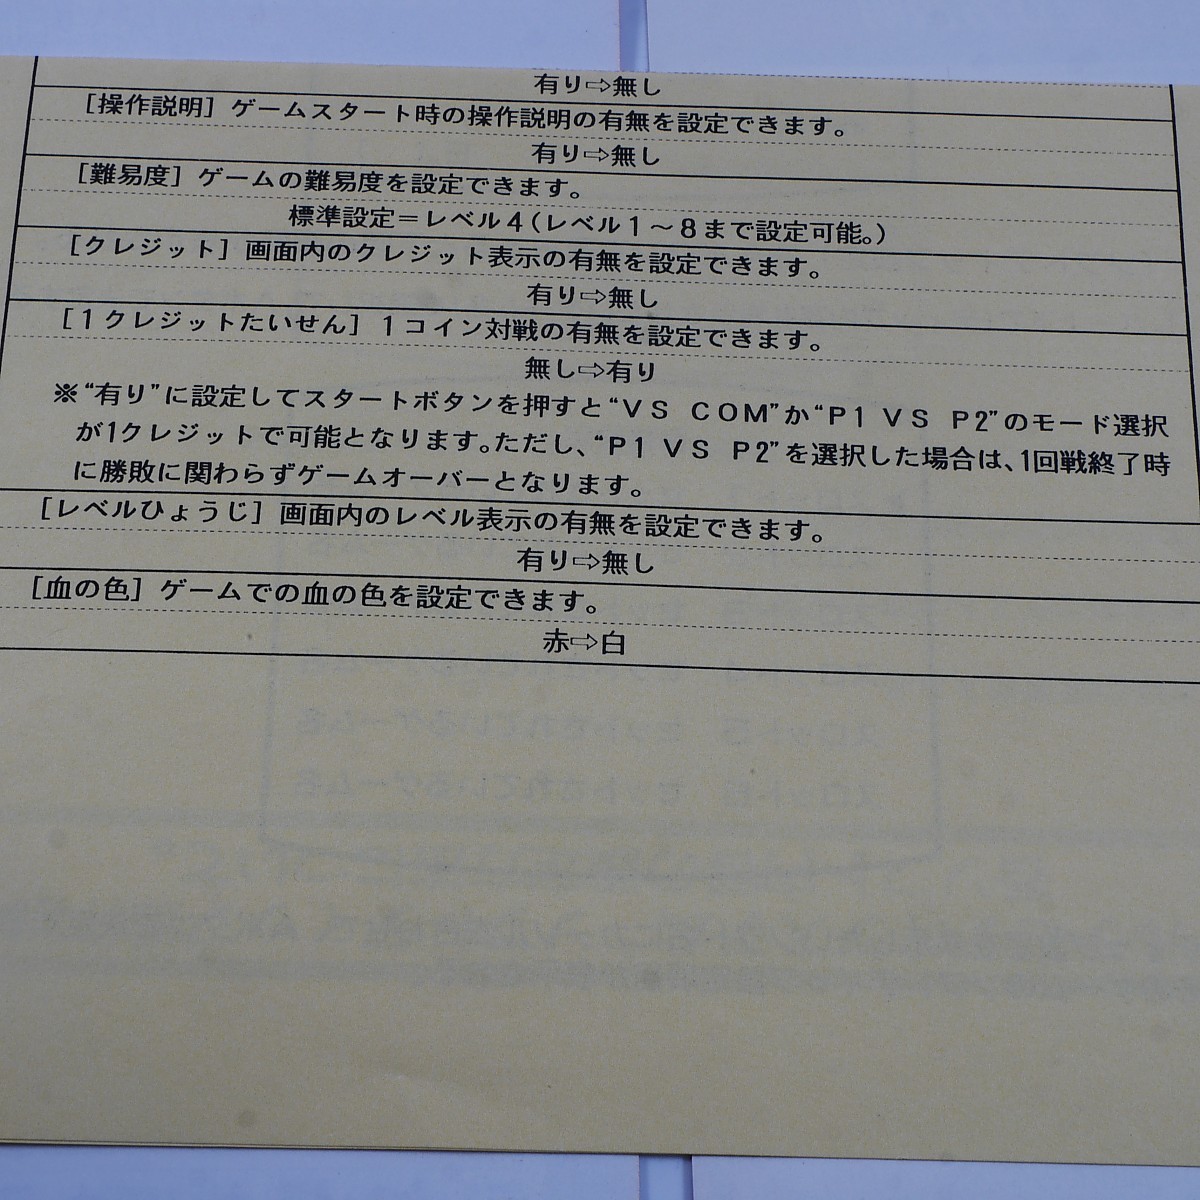 有り⇨無し
[操作説明] ゲームスタート時の操作説明の有無を設定できます。
有り⇨無し
[難易度] ゲームの難易度を設定できます。
標準設定=レベル4(レベル1~8まで設定可能。)
[クレジット] 画面内のクレジット表示の有無を設定できます。
有り⇨無し
[1クレジットたいせん] 1コイン対戦の有無を設定できます。
無し⇨有り
※“有り”に設定してスタートボタンを押すと“VS COM”か“P1 VS P2”のモード選択
が1クレジットで可能となります。ただし、“P1 VS P2”を選択した場合は、1回戦終了時
に勝敗に関わらずゲームオーバーとなります。
[レベルひょうじ] 画面内のレベル表示の有無を設定できます。
有り⇨無し
[血の色] ゲームでの血の色を設定できます。
赤⇨白